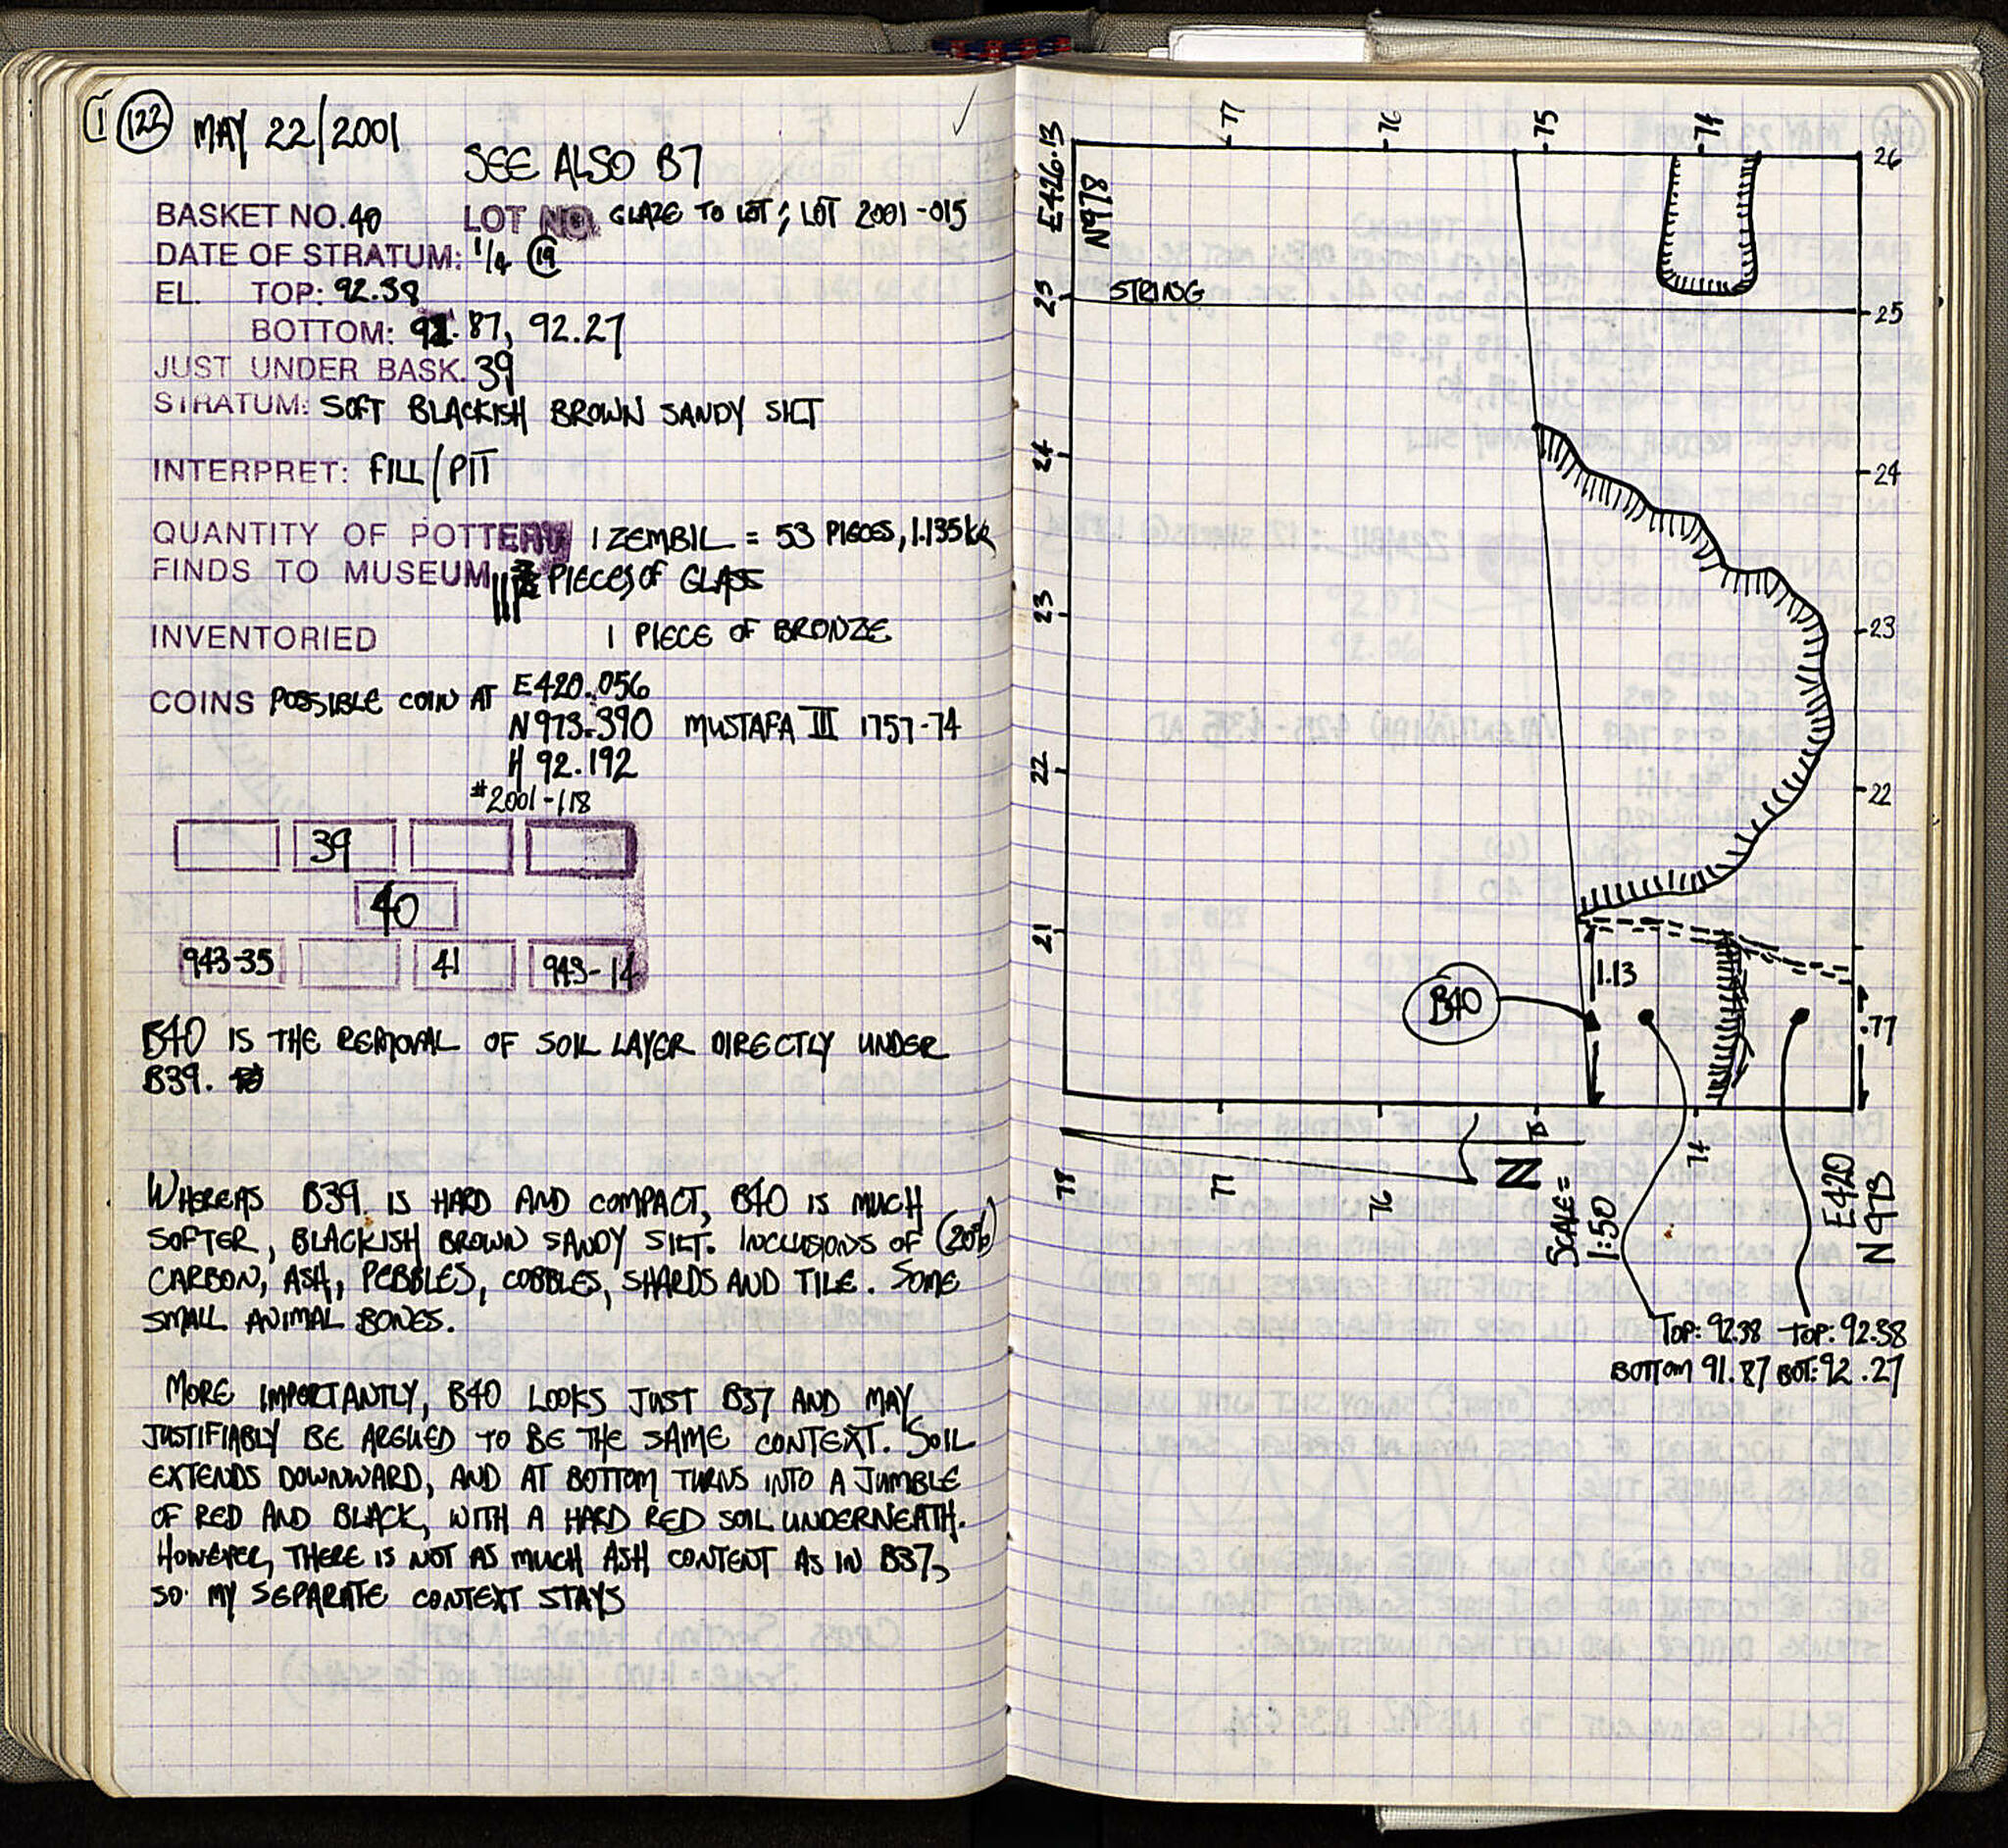 122 MAY 22/2001
SEE ALSO B7
BASKET NO. 40 LOT NO. GLAZE TO LOT; LOT 2001-015
DATE OF STRATUM: 1/4 @ 19
EL. TOP: 92.38
BOTTOM: 91.87, 92.27
JUST UNDER BASK. 39
STRATUM: SOFT BLACKISH BROWN SANDY SILT
INTERPRET: FILL/PIT
QUANTITY OF POTTERY 1 ZEMBIL = 53 PIECES, 1.135 KG
FINDS TO MUSEUM PIECES OF GLASS
INVENTORIED 1 PIECE OF BRONZE
COINS POSSIBLE COIN AT E420.056
N973.390 MUSTAFA III 1757-74
H 92.192
#2001-118
39
40
943-35 41 943-14
B40 IS THE REMOVAL OF SOIL LAYER DIRECTLY UNDER
B39.
WHEREAS B39 IS HARD AND COMPACT, B40 IS MUCH
SOFTER, BLACKISH BROWN SANDY SILT. INCLUSIONS OF (20%)
CARBON, ASH, PEBBLES, COBBLES, SHARDS AND TILE. SOME
SMALL ANIMAL BONES.
MORE IMPORTANTLY, B40 LOOKS JUST B37 AND MAY
JUSTIFIABLY BE ARGUED TO BE THE SAME CONTEXT. SOIL
EXTENDS DOWNWARD, AND AT BOTTOM TURNS INTO A JUMBLE
OF RED AND BLACK, WITH A HARD RED SOIL UNDERNEATH.
HOWEVER, THERE IS NOT AS MUCH ASH CONTENT AS IN B37,
SO MY SEPARATE CONTEXT STAYS
E426.13
N978
77 76 75 74
26
25 STRING 25
24 24
23 23
22 22
21
B40
1.13
.77
78 77 76 75 74
N
SCALE =
1:50
E420
N973
TOP: 92.38 TOP: 92.38
BOTTOM 91.87 BOT: 92.27